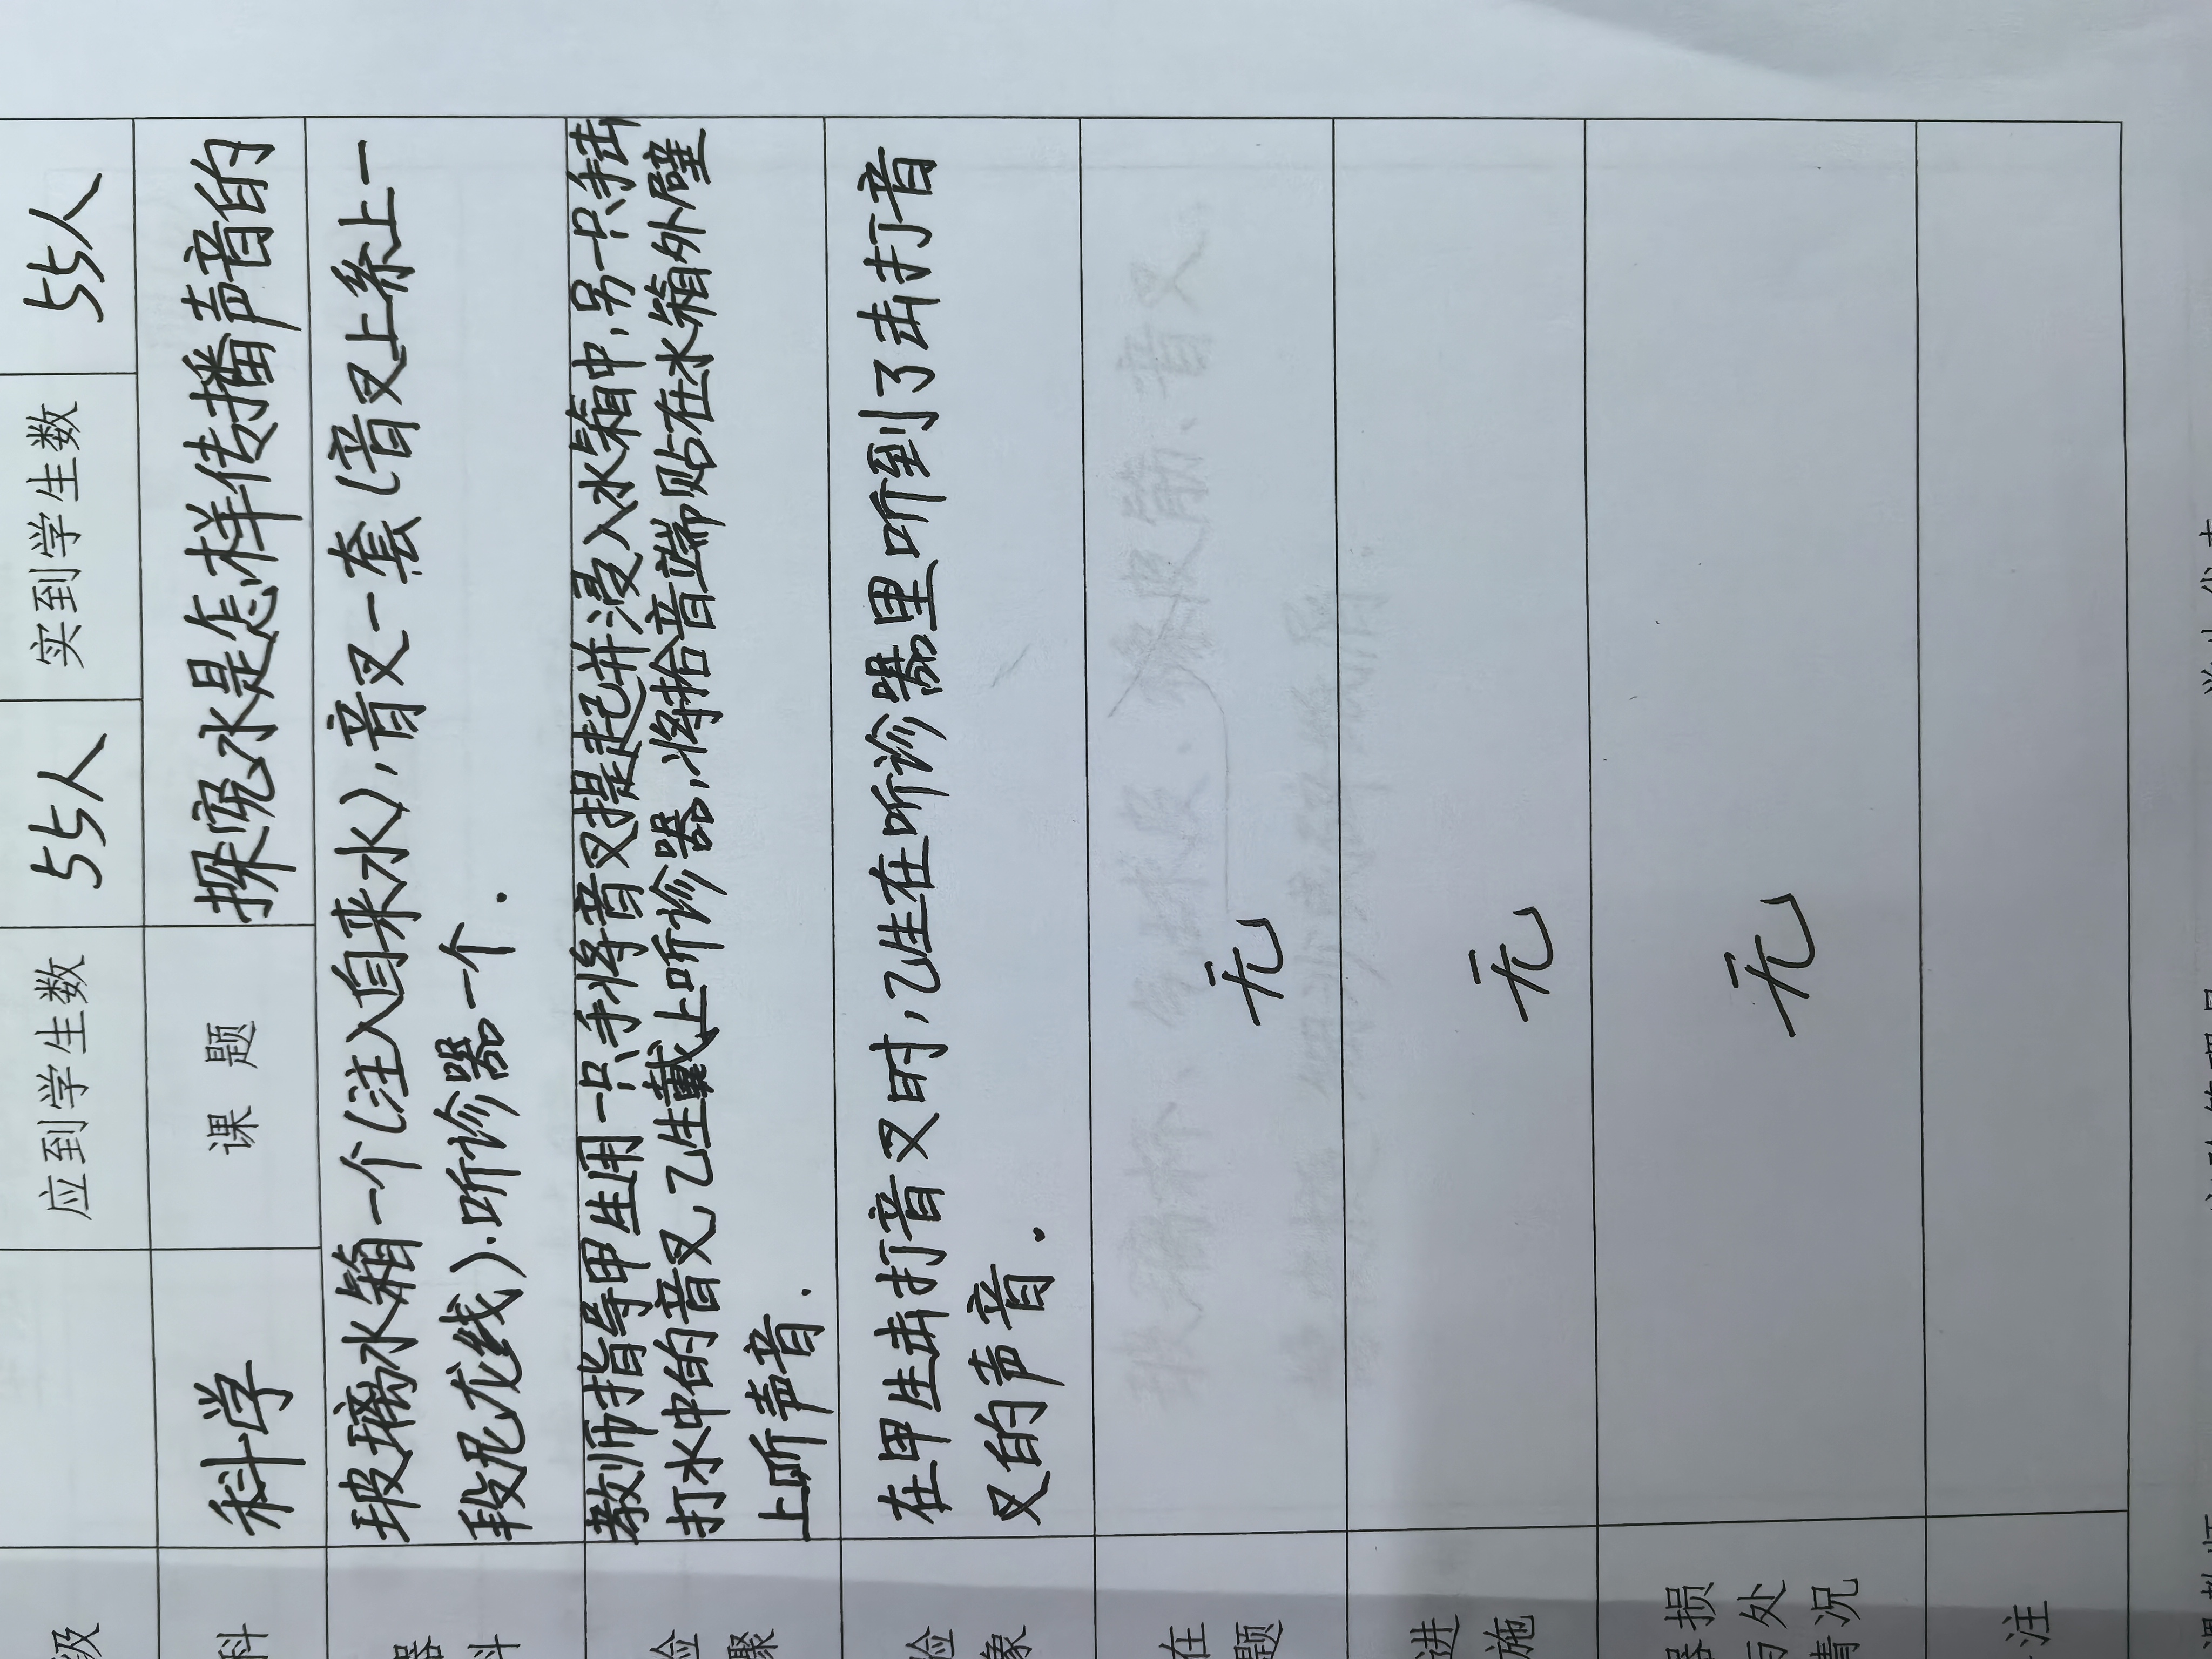 级 应到学生数 55人 实到学生数 55人
科 科学 课题 探究水是怎样传播声音的
器 玻璃水箱一个(注入自来水),音叉一套(音叉上系上一
料 段尼龙线).听诊器一个.
验 教师指导甲生用一只手将音叉提起并浸入水箱中,另一只手击
骤 打水中的音叉,乙生戴上听诊器,将拾音端贴在水箱外壁
上听声音.
验 在甲生击打音叉时,乙生在听诊器里听到了击打音
象 叉的声音.
在
题 无
进
施 无
器损
与处 无
情况
注